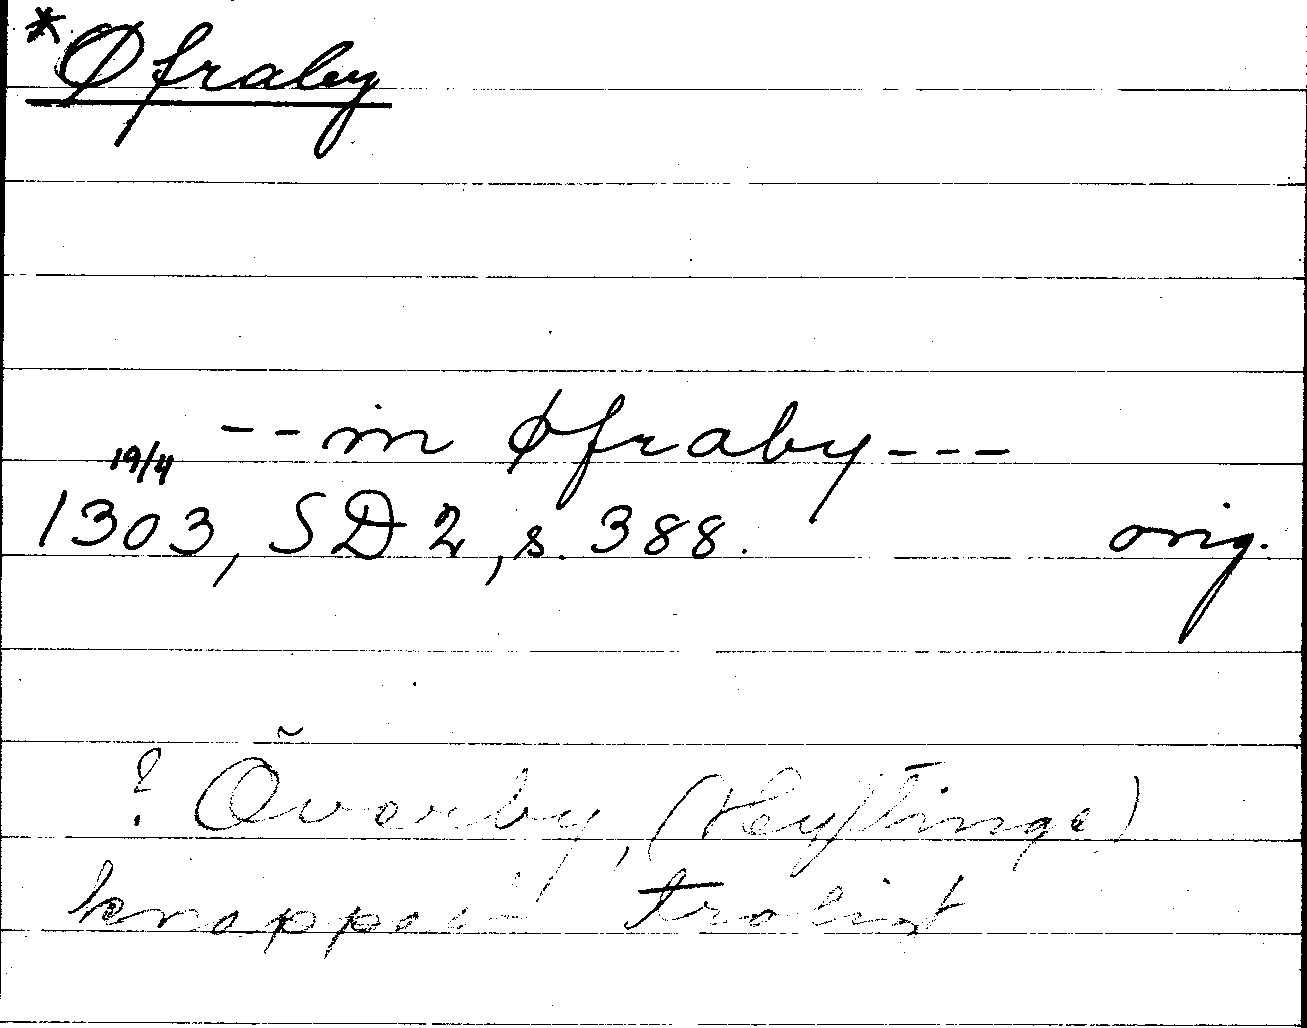 *Øfraby
--in Øfraby---
19/4
1303, SD 2, s. 388. orig.
? Överby,
knappast troligt